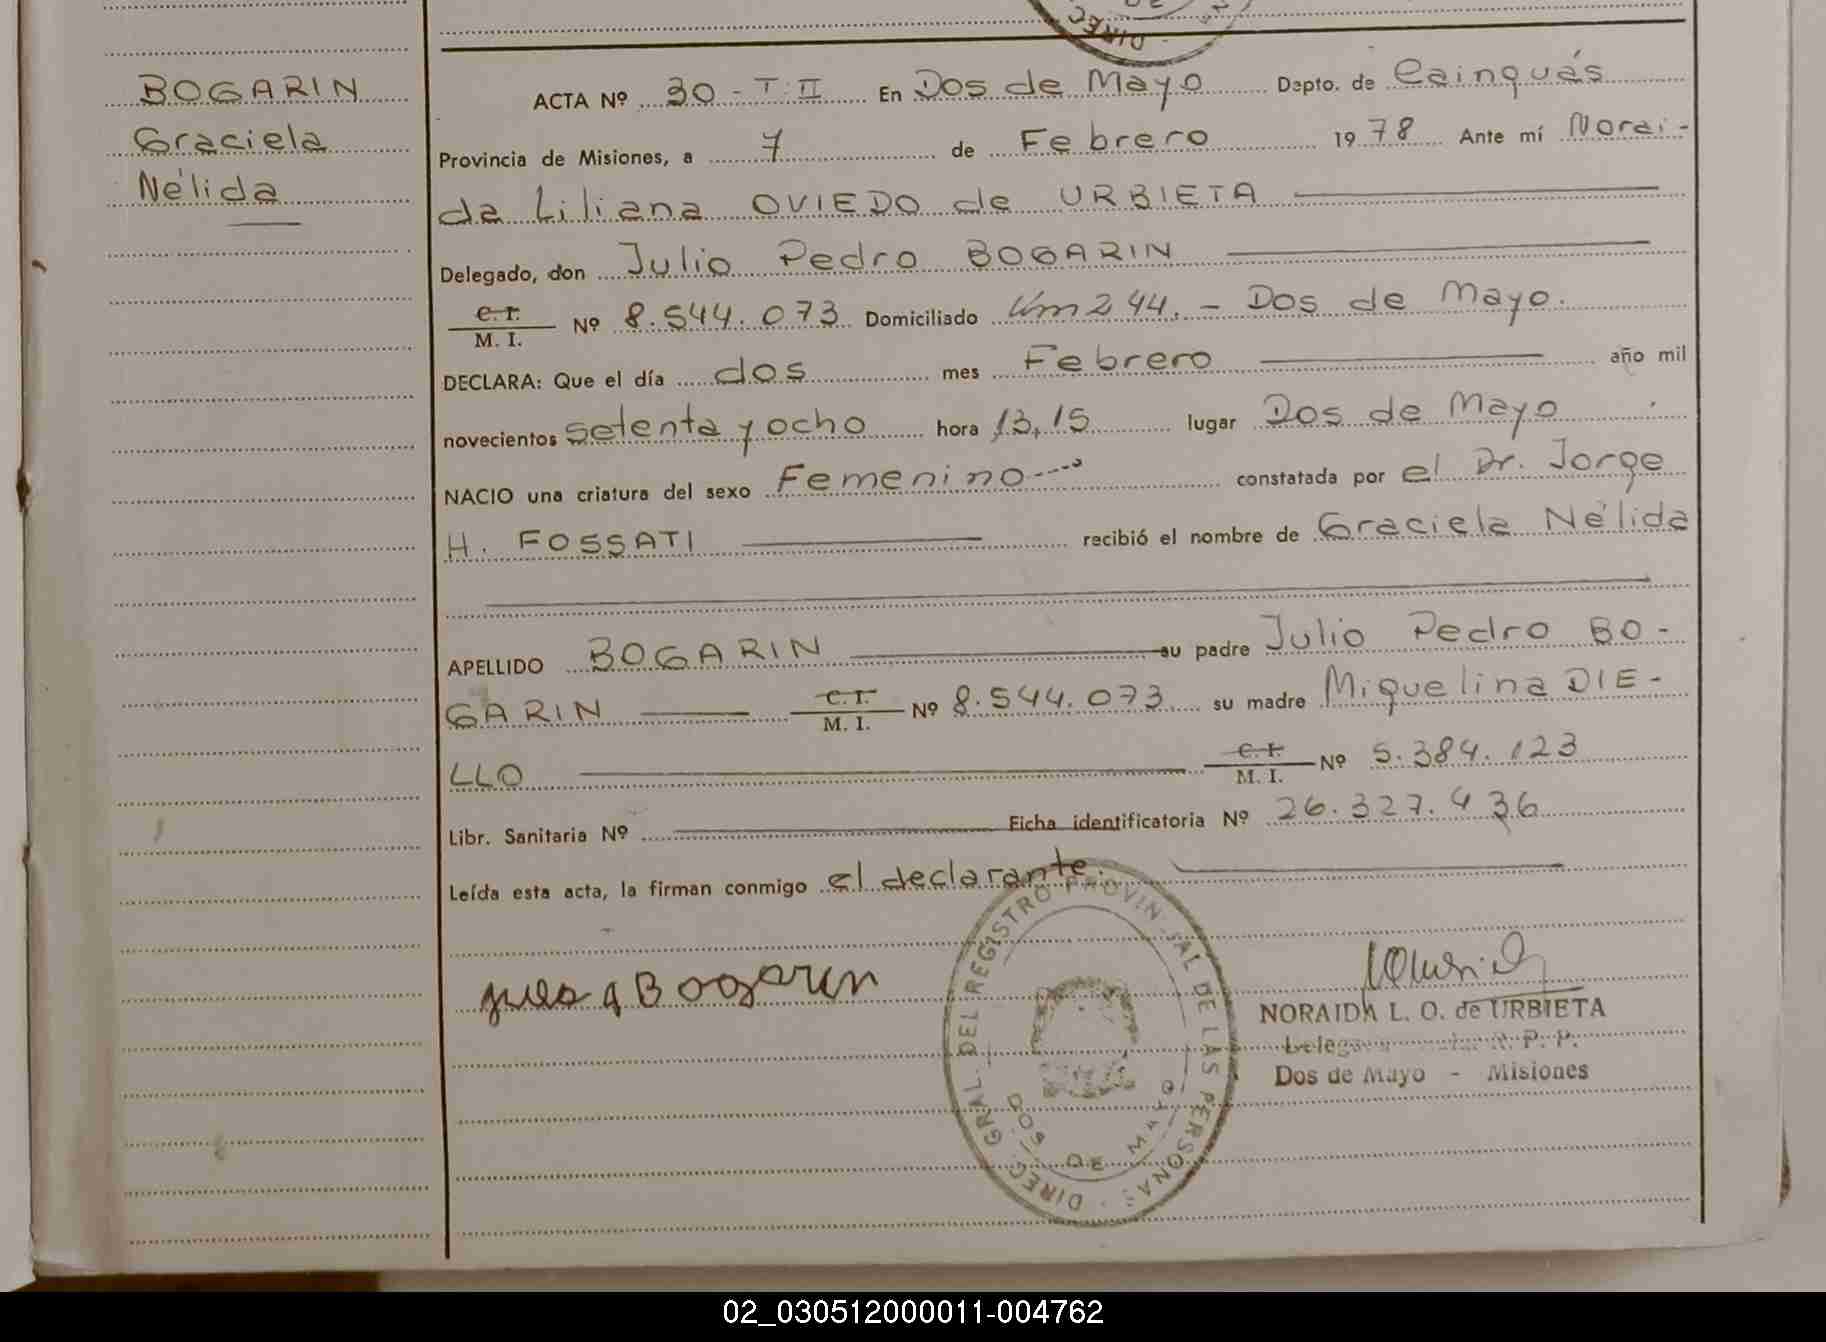 BOGARIN
Graciela
Nélida
ACTA Nº 30 - T: II En Dos de Mayo Dpto. de Cainguás
Provincia de Misiones, a 7 de Febrero 1978 Ante mí Norai-
da Liliana OVIEDO de URBIETA
Delegado, don Julio Pedro BOGARIN
C. I.
M. I. Nº 8.544.073 Domiciliado Km 244. - Dos de Mayo.
DECLARA: Que el día dos mes Febrero año mil
novecientos setenta y ocho hora 13,15 lugar Dos de Mayo
NACIO una criatura del sexo Femenino constatada por el Dr. Jorge
H. FOSSATI recibió el nombre de Graciela Nélida
APELLIDO BOGARIN su padre Julio Pedro BO-
GARIN C. I. M. I. Nº 8.544.073 su madre Miguelina DIE-
LLO C. I. M. I. Nº 5.384.123
Libr. Sanitaria Nº Ficha identificatoria Nº 26.327.436
Leída esta acta, la firman conmigo el declarante.
Bogarin
DIREC. GRAL. DEL REGISTRO PROVIN. DE LAS PERSONAS
DOS DE MAYO
NORAIDA L. O. de URBIETA
R. P. P.
Dos de Mayo - Misiones
02_030512000011-004762